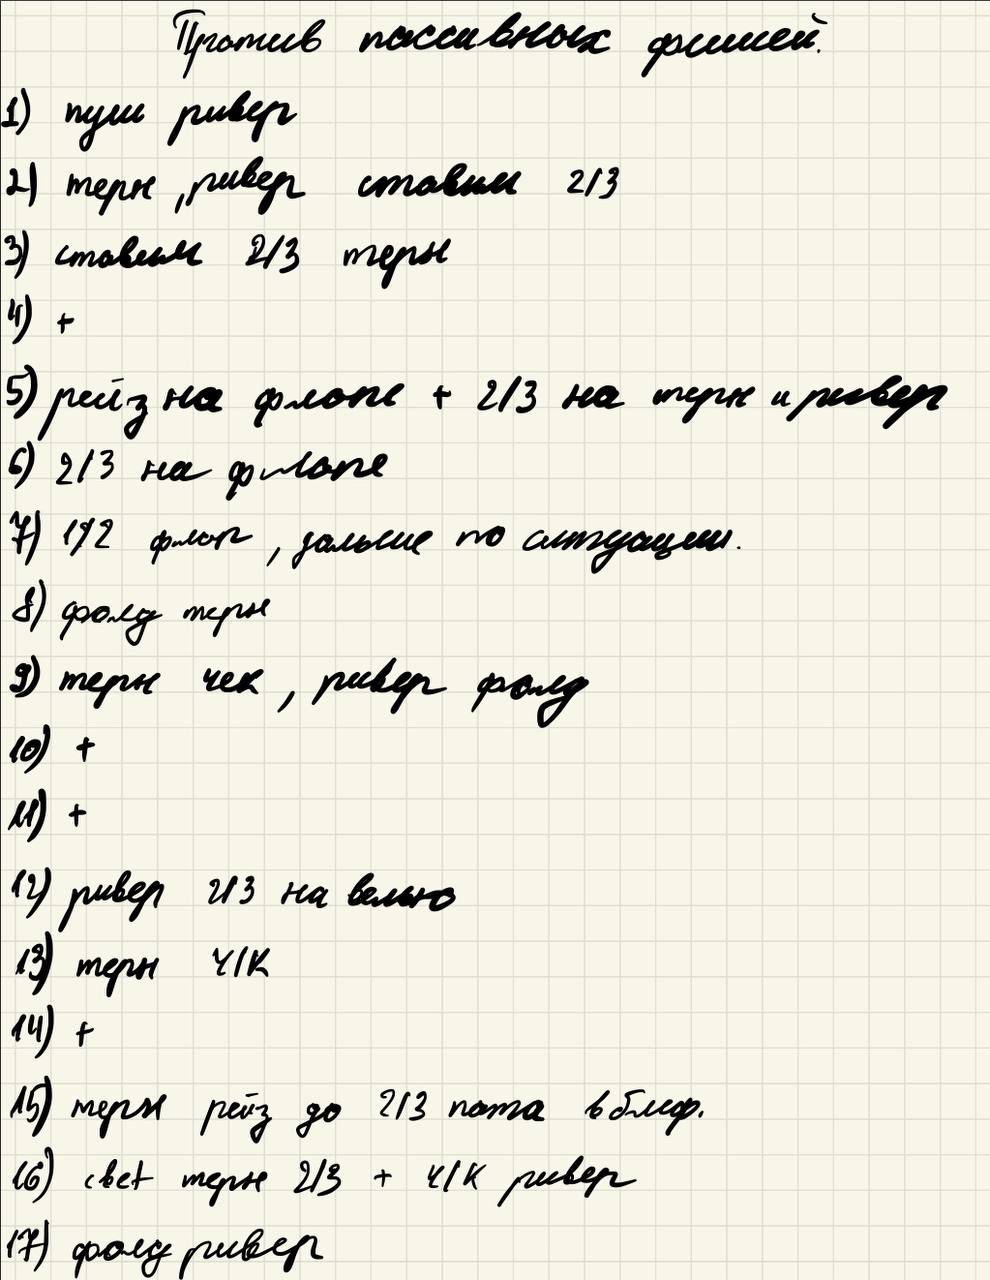 Против пассивных фишей.
1) пуш ривер
2) терн, ривер ставим 2/3
3) ставим 2/3 терн
4) +
5) рейз на флопе + 2/3 на терн и ривер
6) 2/3 на флопе
7) 1/2 флоп, дальше по ситуации.
8) фолд терн
9) терн чек, ривер фолд
10) +
11) +
12) ривер 2/3 на велью
13) терн ч/к
14) +
15) терн рейз до 2/3 пота в блеф.
16) cbet терн 2/3 + ч/к ривер
17) фолд ривер